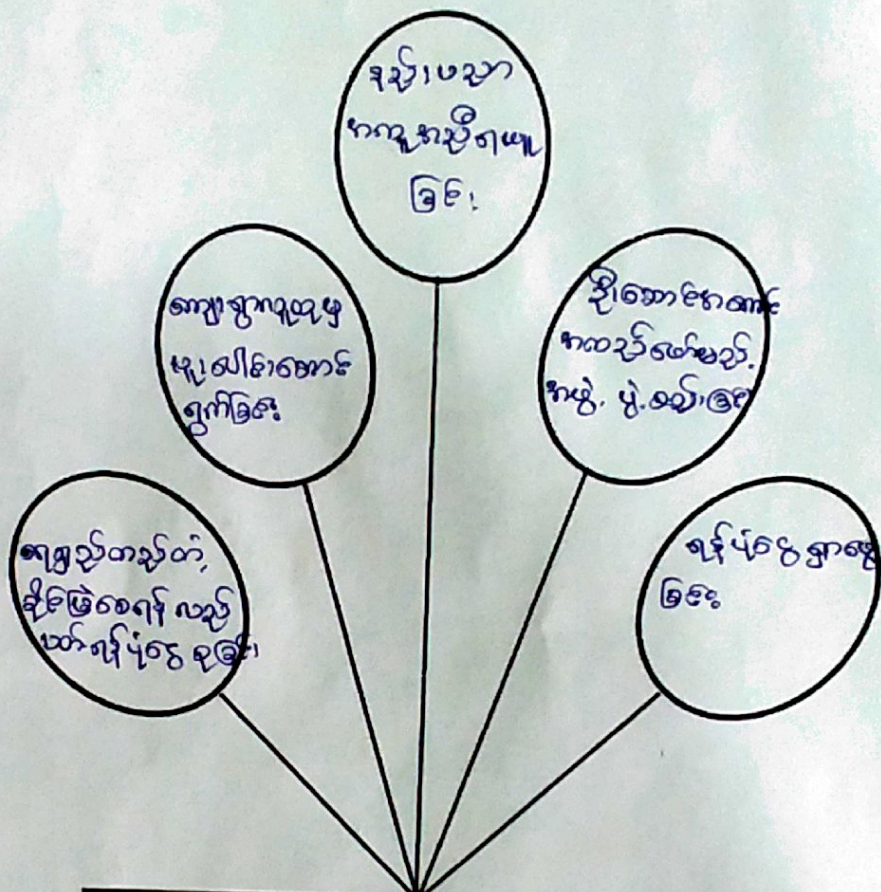 နည်းပညာ
အကူအညီရယူ
ခြင်း
ကျေးရွာလူထုမှ
ပူးပေါင်းဆောင်
ရွက်ခြင်း
ဦးဆောင်အကောင်
အထည်ဖော်မည့်
အဖွဲ့ ဖွဲ့စည်းခြင်း
ရေရှည်တည်တံ့
ခိုင်မြဲစေရန် လည်
ပတ်ရန်ပုံငွေ စုခြင်း
ရန်ပုံငွေ ရှာဖွေ
ခြင်း